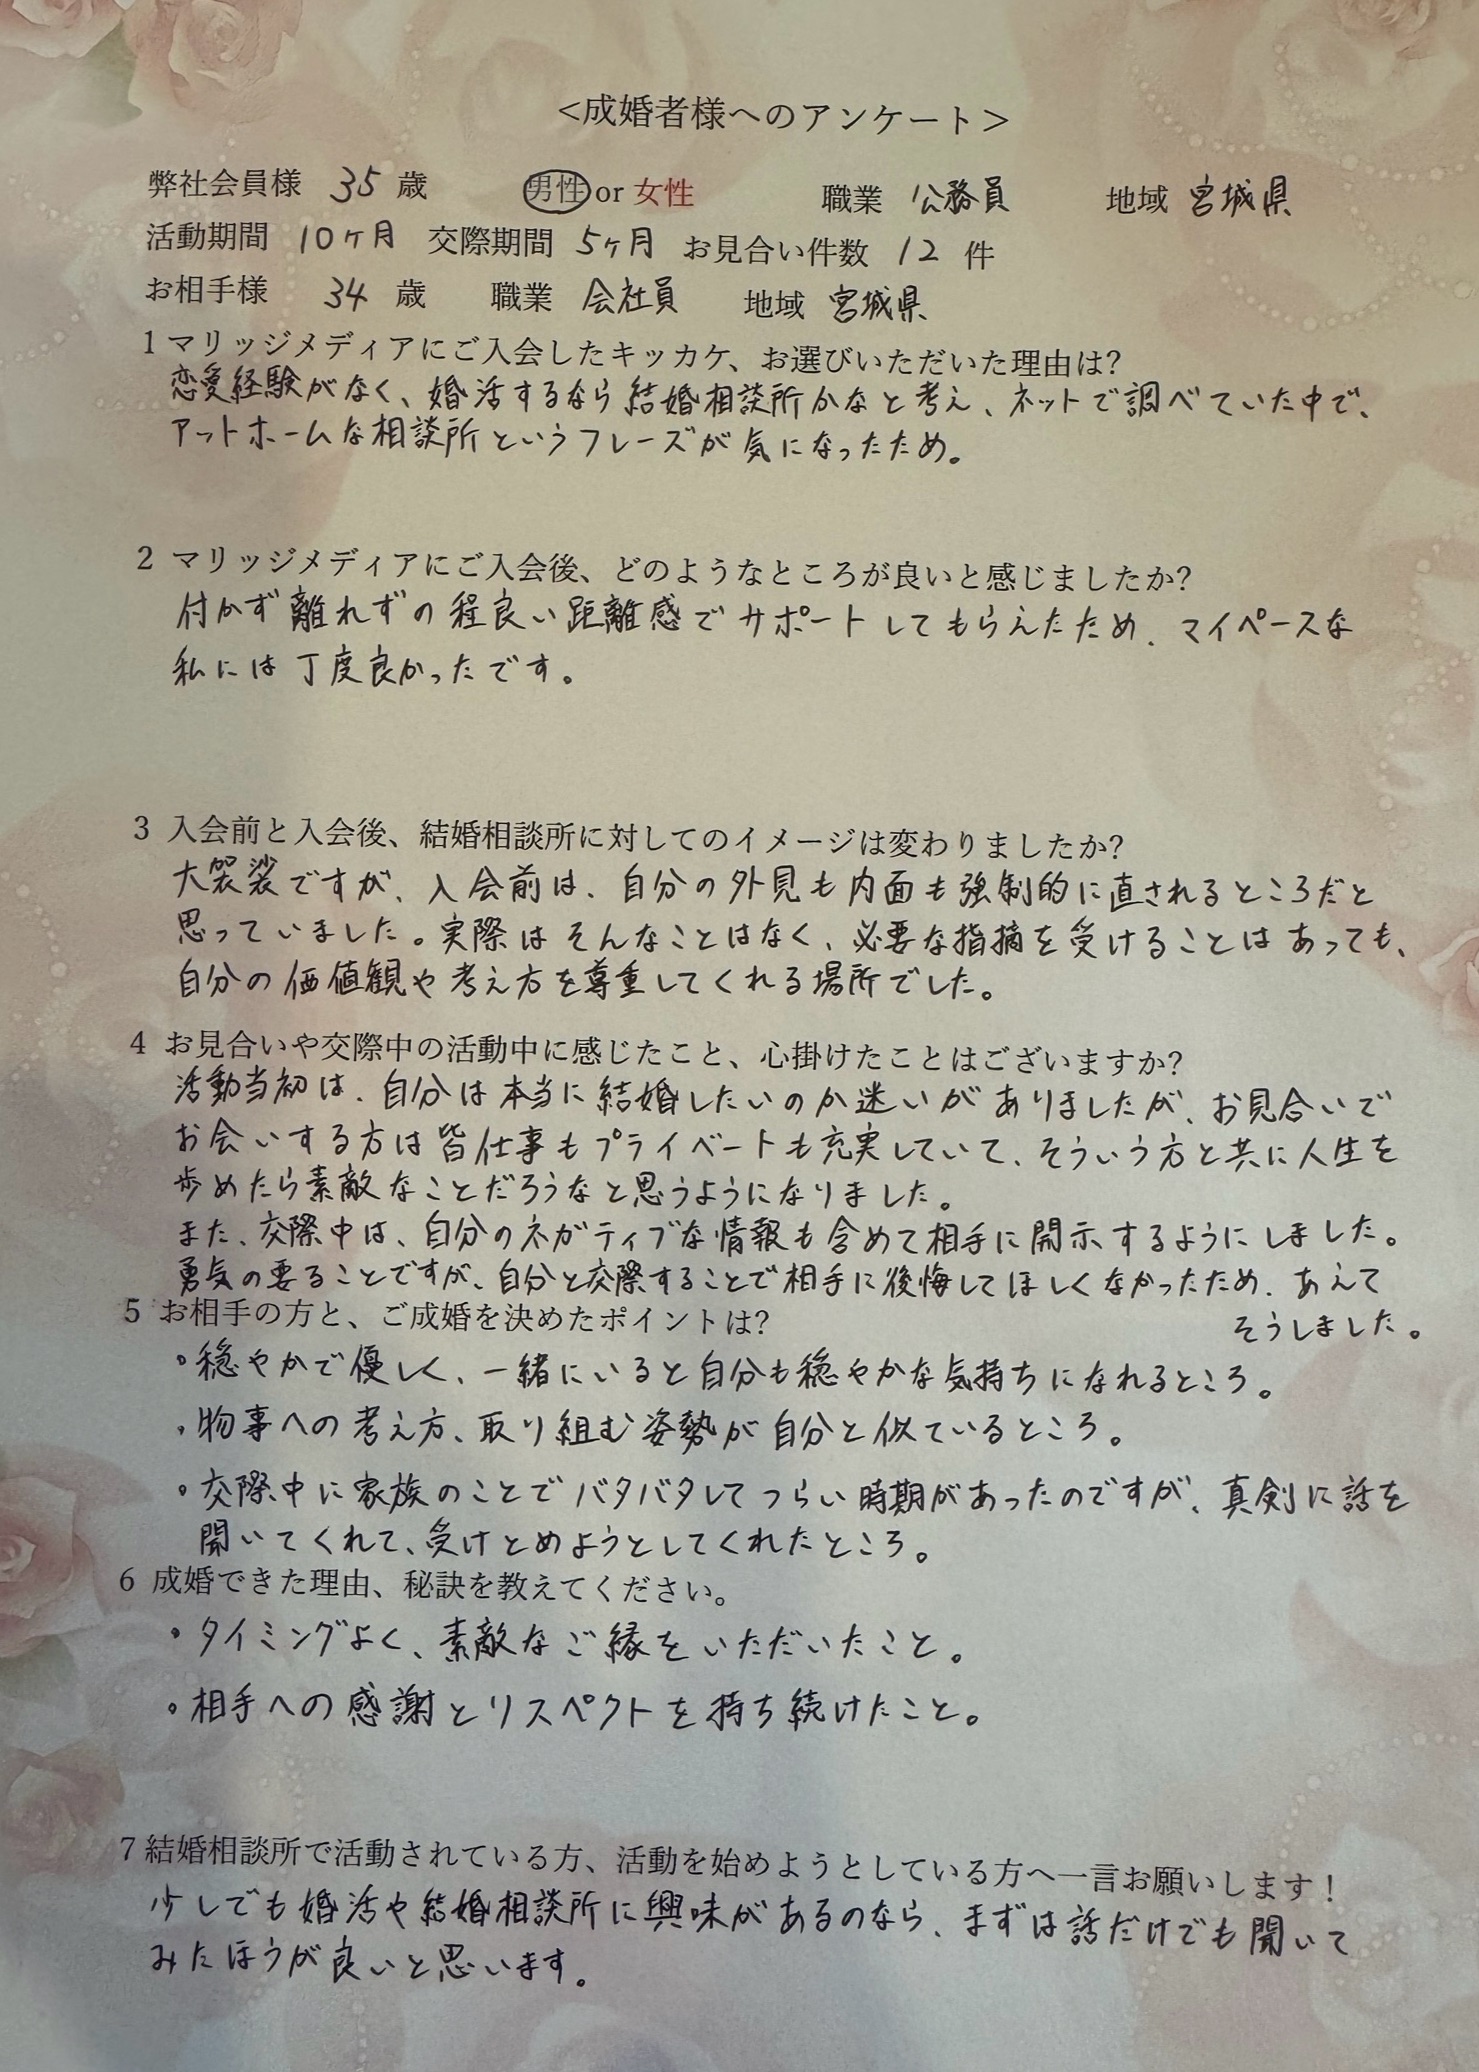 <成婚者様へのアンケート>
弊社会員様 35 歳 男性 or 女性 職業 公務員 地域 宮城県
活動期間 10ヶ月 交際期間 5ヶ月 お見合い件数 12 件
お相手様 34 歳 職業 会社員 地域 宮城県
1 マリッジメディアにご入会したキッカケ、お選びいただいた理由は?
恋愛経験がなく、婚活するなら結婚相談所かなと考え、ネットで調べていた中で、
アットホームな相談所というフレーズが気になったため。
2 マリッジメディアにご入会後、どのようなところが良いと感じましたか?
付かず離れずの程良い距離感でサポートしてもらえたため、マイペースな
私には丁度良かったです。
3 入会前と入会後、結婚相談所に対してのイメージは変わりましたか?
大袈裟ですが、入会前は、自分の外見も内面も強制的に直されるところだと
思っていました。実際はそんなことはなく、必要な指摘を受けることはあっても、
自分の価値観や考え方を尊重してくれる場所でした。
4 お見合いや交際中の活動中に感じたこと、心掛けたことはございますか?
活動当初は、自分は本当に結婚したいのか迷いがありましたが、お見合いで
お会いする方は皆仕事もプライベートも充実していて、そういう方と共に人生を
歩めたら素敵なことだろうなと思うようになりました。
また、交際中は、自分のネガティブな情報も含めて相手に開示するようにしました。
勇気の要ることですが、自分と交際することで相手に後悔してほしくなかったため、あえて
そうしました。
5 お相手の方と、ご成婚を決めたポイントは?
・穏やかで優しく、一緒にいると自分も穏やかな気持ちになれるところ。
・物事への考え方、取り組む姿勢が自分と似ているところ。
・交際中に家族のことでバタバタしてつらい時期があったのですが、真剣に話を
聞いてくれて、受けとめようとしてくれたところ。
6 成婚できた理由、秘訣を教えてください。
・タイミングよく、素敵なご縁をいただいたこと。
・相手への感謝とリスペクトを持ち続けたこと。
7 結婚相談所で活動されている方、活動を始めようとしている方へ一言お願いします!
少しでも婚活や結婚相談所に興味があるのなら、まずは話だけでも聞いて
みたほうが良いと思います。